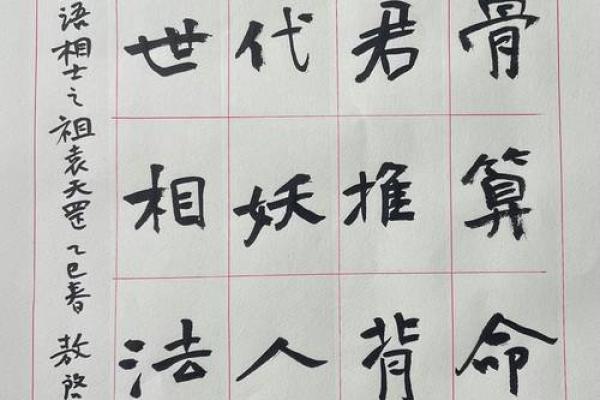 骨算命
君推背
代妖人
世相法
语相士之祖袁天罡乙巳春 敖啓